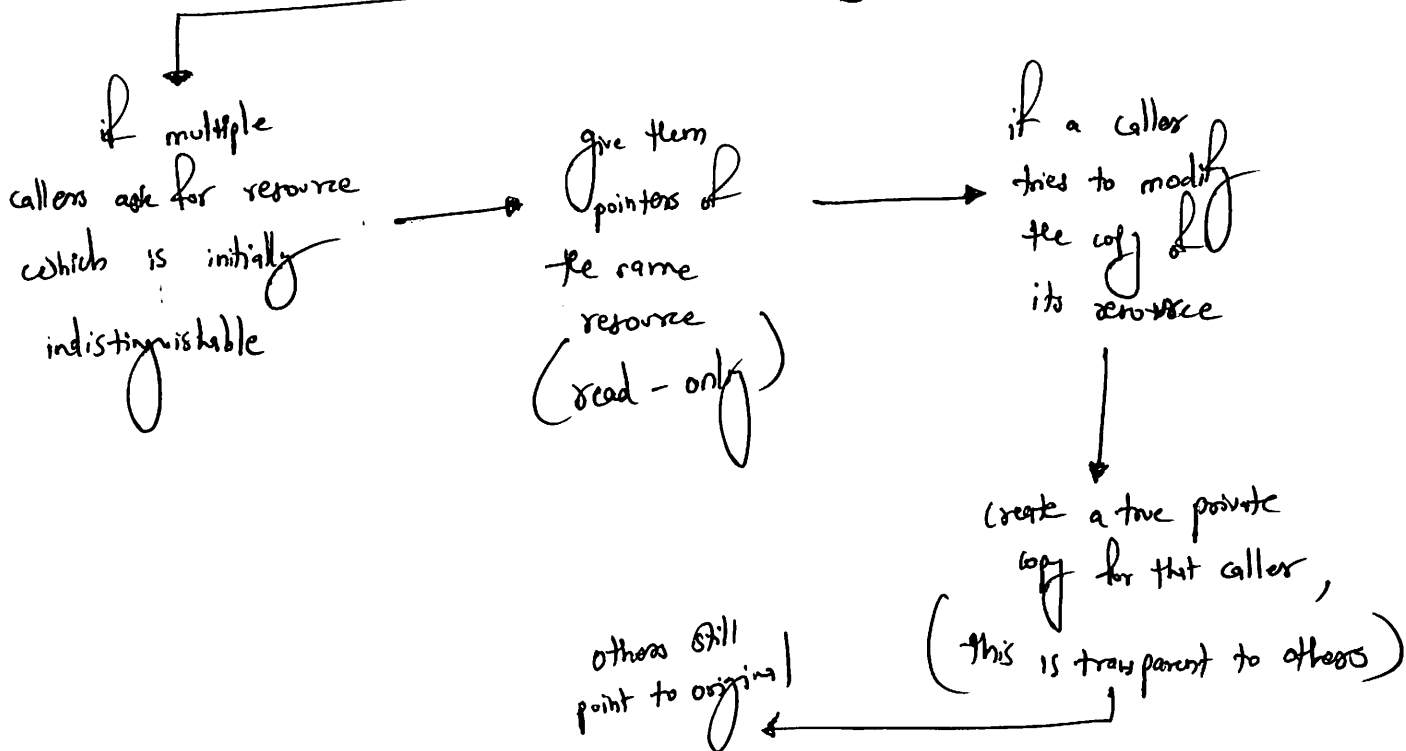 if multiple
callers ask for resource
which is initially
indistinguishable
give them
pointers of
the same
resource
(read - only)
if a caller
tries to modify
the copy of
its resource
create a true private
copy for that caller,
(this is transparent to others)
others still
point to original